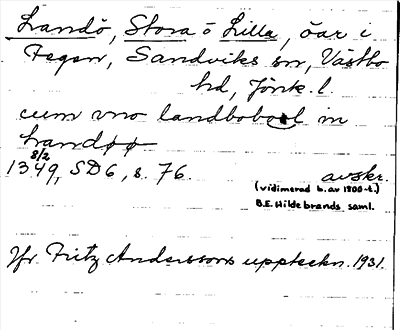 Landö, Stora o Lilla, öar i
Fegen, Sandviks sn, Västbo
hd, Jönk. l.
cum vno landbobool in
Landøø
8/2
1349, SD6, s. 76. avskr.
(vidimerad b. av 1800-t.)
B.E. Hildebrands saml.
Jfr. Fritz Anderssons uppteckn. 1931.